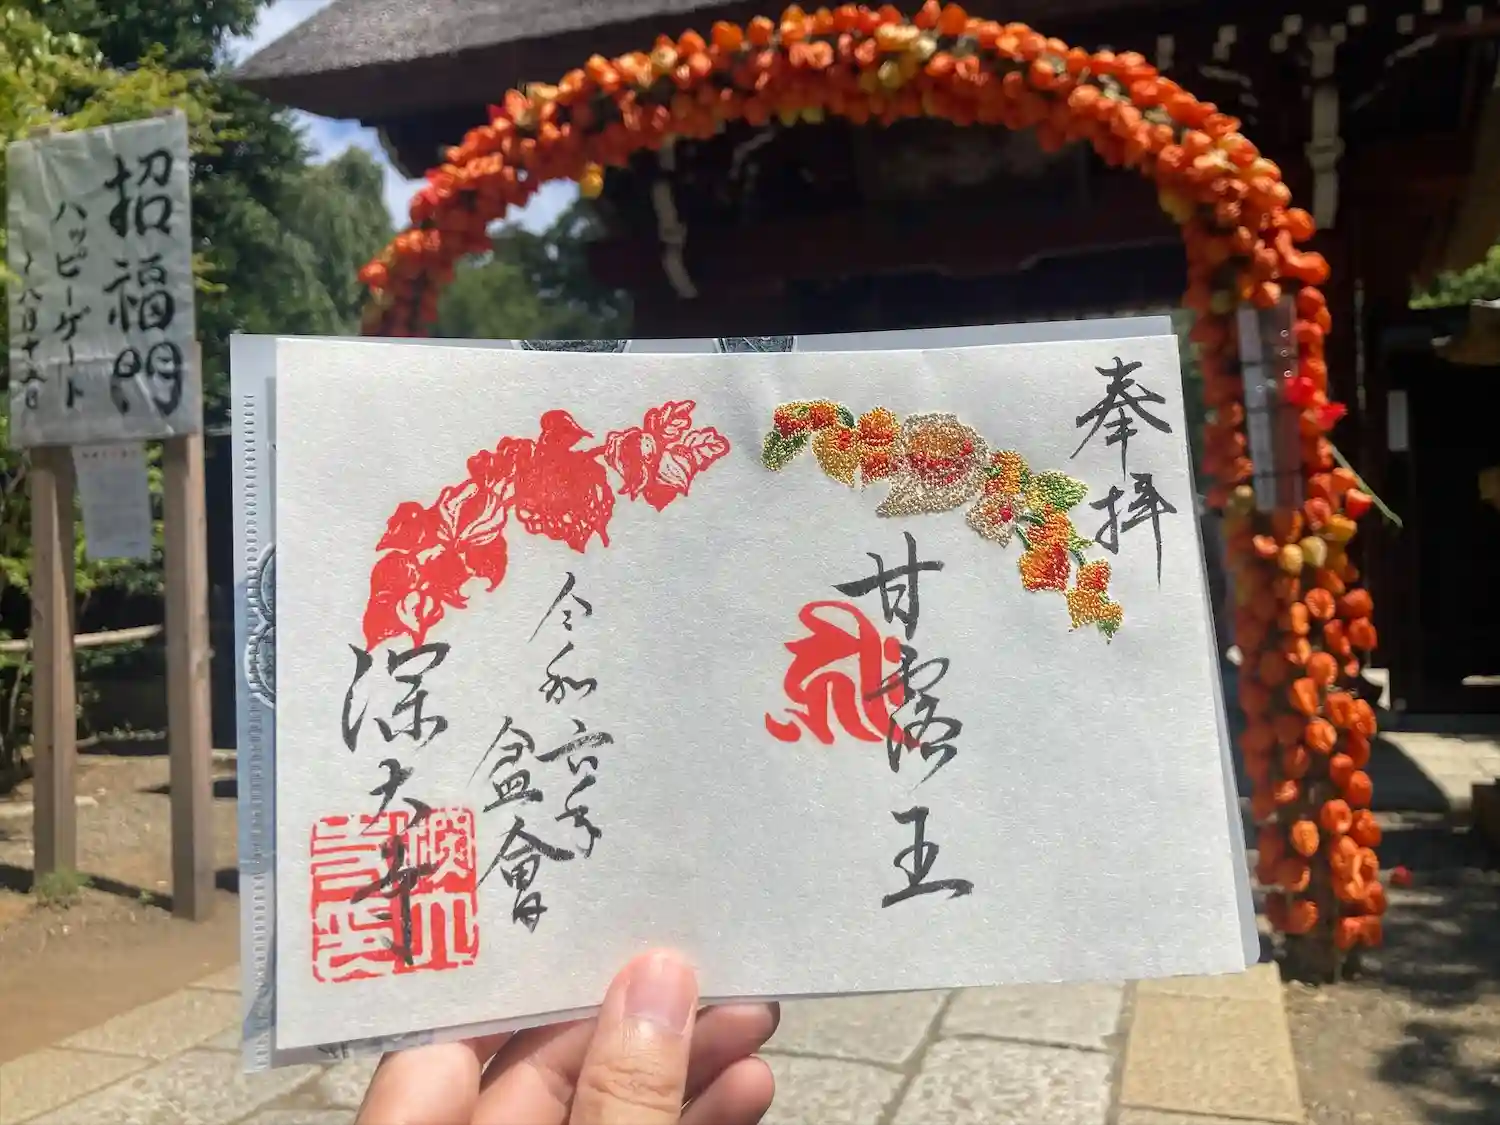 招福門
ハッピーゲート
八月十六日
奉拝
甘露王
令和六年
盆會
深大寺